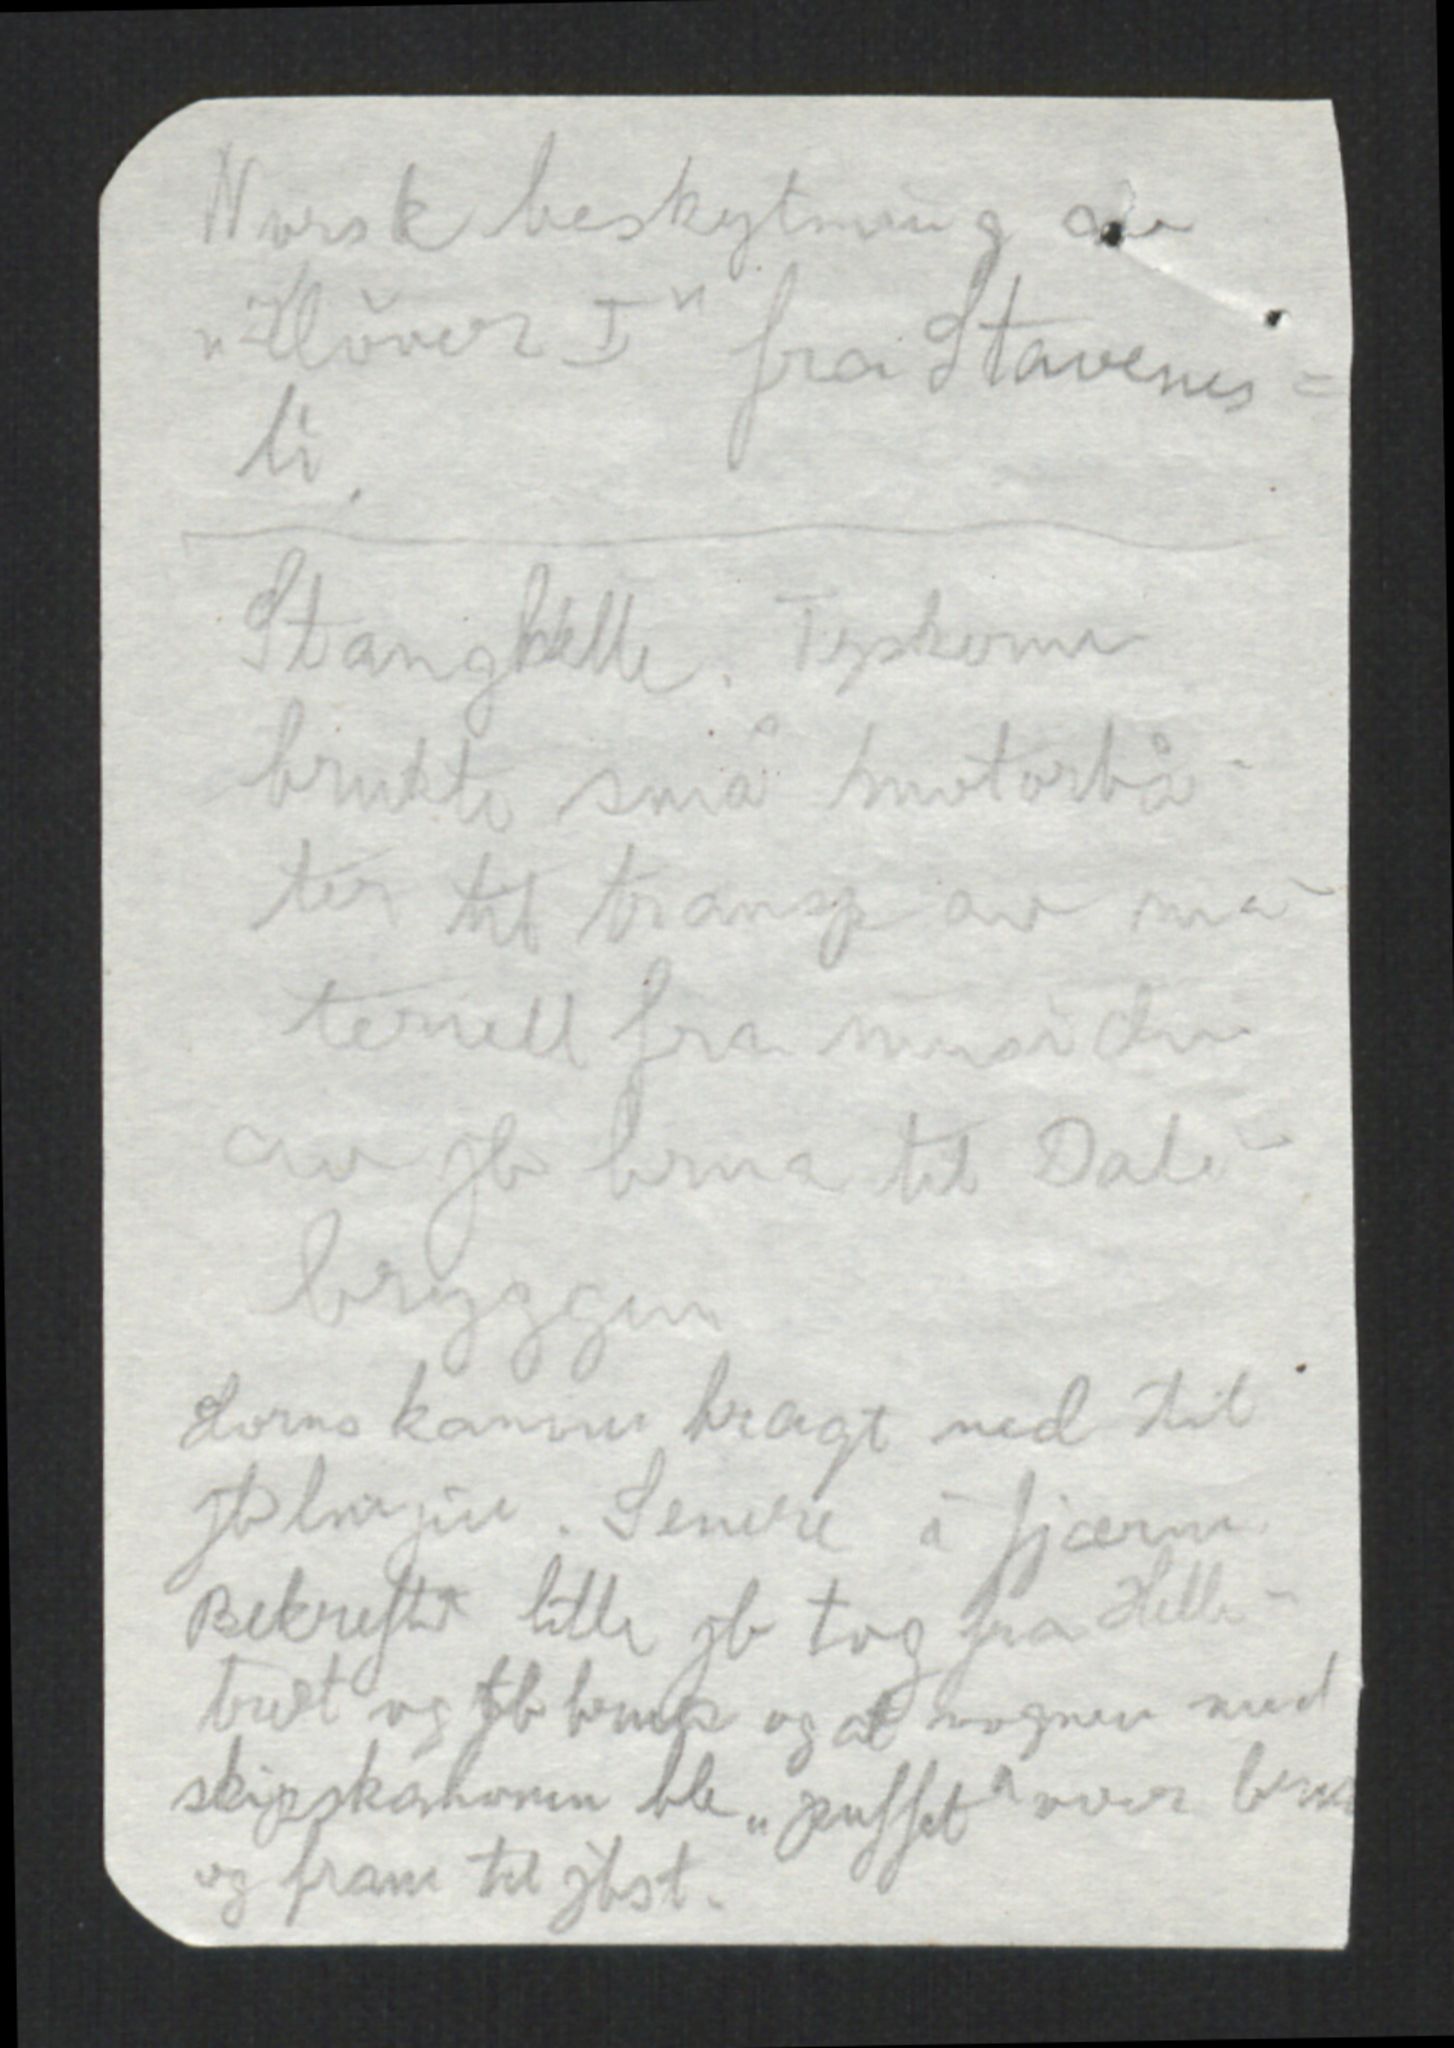 Norsk beskytning av
"Kløver I" fra Stavenes=
li.
Stanghelle. Tyskerne
brukte små motorbå-
ter til transp av ma-
teriell fra nersiden
av jb brua til Dale-
bryggen
kanonen bragt ned til
jb linjen. Senere å fjerne
Bekrefte lille jb tog fra Helle-
tret og jb brua og at vognen med
skipskanonen ble "puffet" over brua
og fram til jbst.